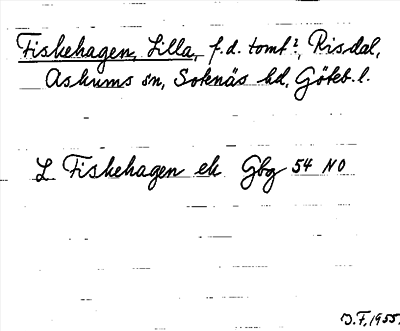 Fiskehagen, Lilla, f.d. tomt?, Risdal,
Askums sn, Sotenäs hd, Göteb. l.
L Fiskehagen ek Gbg 54 NO
J.F, 1955.